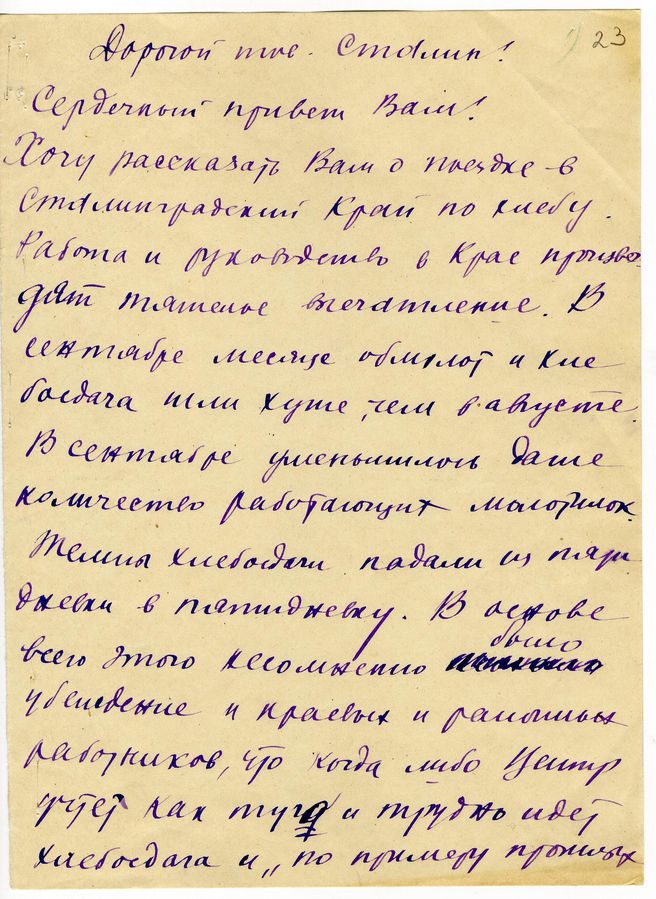 23
Дорогой тов. Сталин!
Сердечный привет Вам!
Хочу рассказать Вам о поездке в
Сталинградский Край по хлебу.
Работа и руководство в Крае произво-
дят тяжелое впечатление. В
сентябре месяце обмолот и хле
босдача шли хуже, чем в августе.
В сентябре уменьшилось даже
количество работающих молотилок.
Темпы хлебосдачи падали из пяти
дневки в пятидневку. В основе
всего этого несомненно было
убеждение и краевых и районных
работников, что когда либо Центр
учтет как туго и трудно идет
хлебосдача и „по примеру прошлых